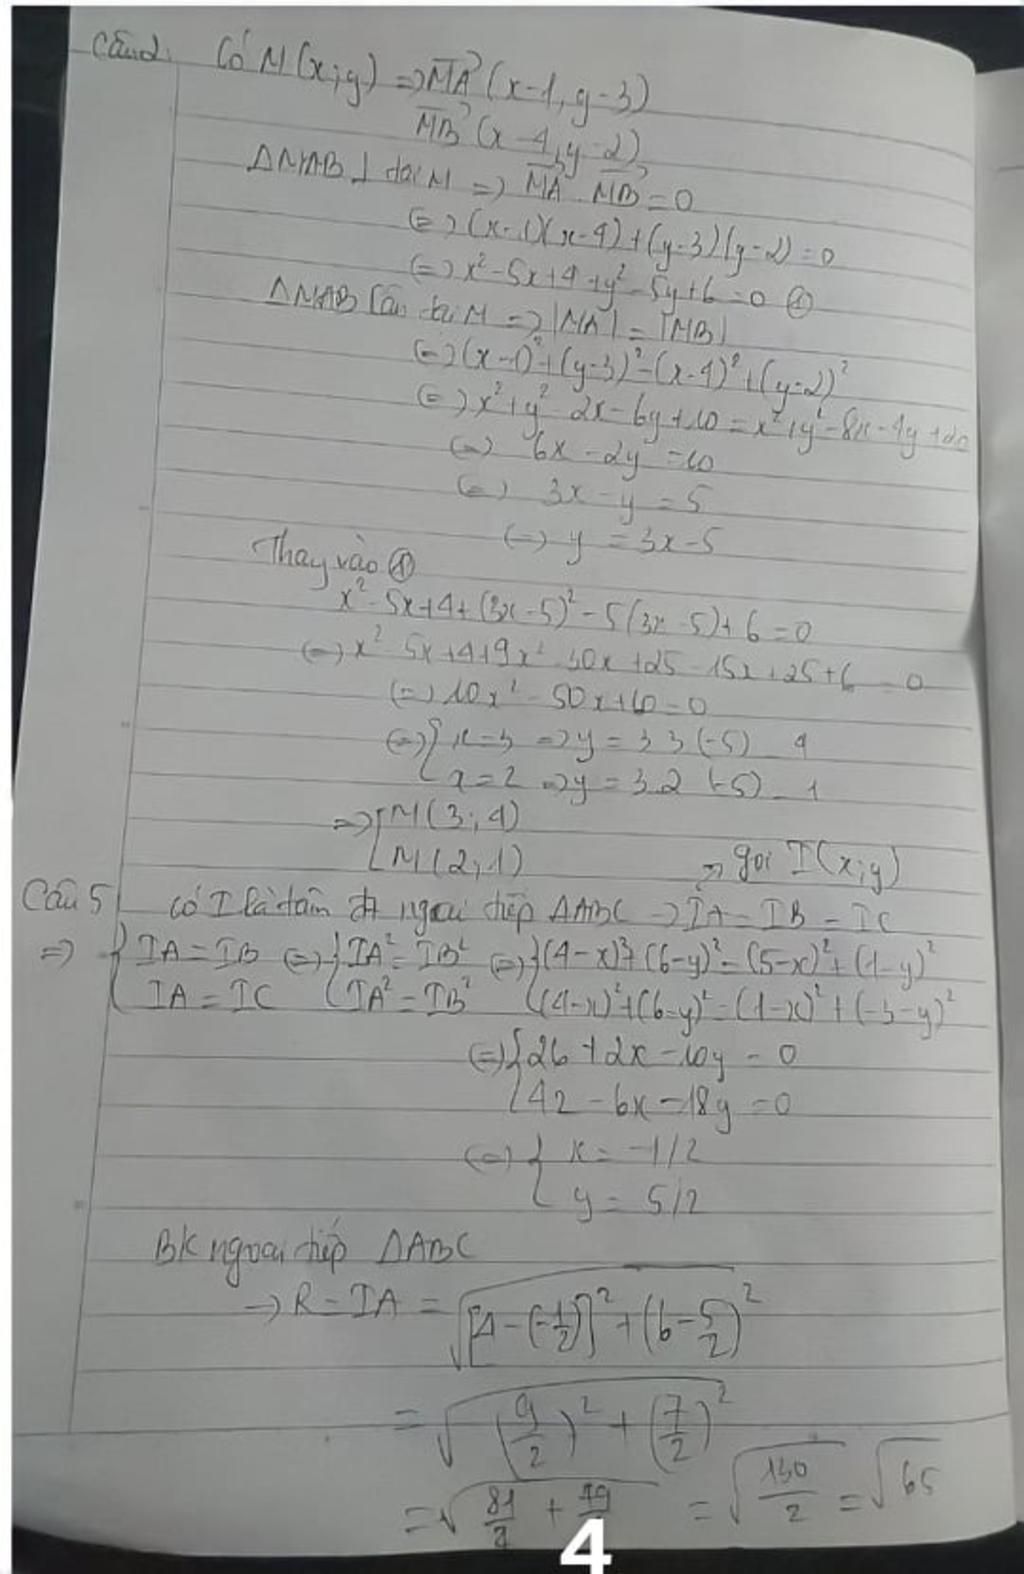 Câu 2: Có M(x;y) => MA (x-1, y-3)
MB (x-4, y-2)
ΔMAB ⊥ tại M => MA . MB = 0
(=) (x-1)(x-4) + (y-3)(y-2) = 0
(=) x² - 5x + 4 + y² - 5y + 6 = 0 ①
ΔMAB cân tại M => |MA| = |MB|
(=) (x-1)² + (y-3)² = (x-4)² + (y-2)²
(=) x² + y² - 2x - 6y + 10 = x² + y² - 8x - 4y + 20
(=) 6x - 2y = 10
(=) 3x - y = 5
(=) y = 3x - 5
Thay vào ①
x² - 5x + 4 + (3x - 5)² - 5(3x - 5) + 6 = 0
(=) x² - 5x + 4 + 9x² - 30x + 25 - 15x + 25 + 6 = 0
(=) 10x² - 50x + 60 = 0
(=) { x = 3 => y = 3.3 (-5) = 4
x = 2 => y = 3.2 (-5) = 1
=> [ M(3; 4)
M(2; 1) => gọi I(x;y)
Câu 5 Có I là tâm đt ngoại tiếp ΔABC -> IA = IB = IC
=> { IA = IB (=) { IA² = IB² (=) { (4-x)² + (6-y)² = (5-x)² + (1-y)²
IA = IC { IA² = IB² { (4-x)² + (6-y)² = (1-x)² + (-3-y)²
(=) { 26 + 2x - 10y = 0
42 - 6x - 18y = 0
(=) { x = -1/2
y = 5/2
BK ngoại tiếp ΔABC
-> R = IA = √[4 - (-1/2)]² + (6 - 5/2)²
= √(9/2)² + (7/2)²
= √81/4 + 49 = √130/2 = √65
4